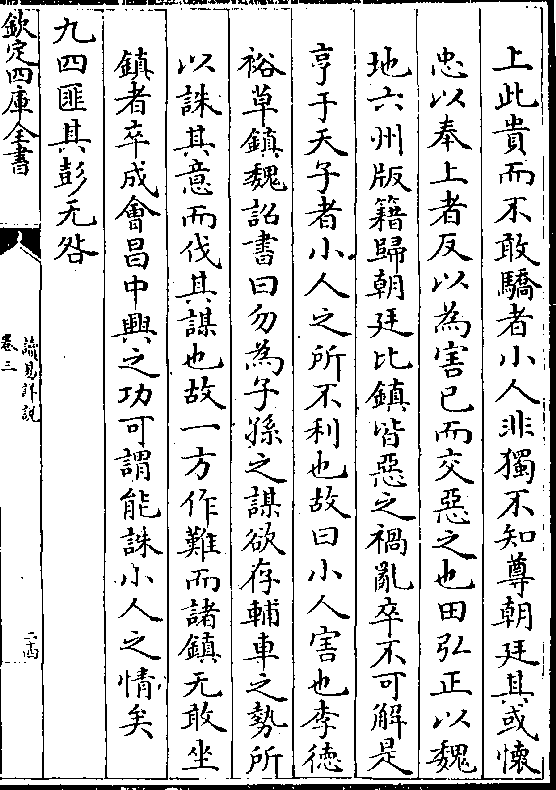 上此貴而不敢驕者小人非獨不知尊朝廷其或懷
忠以奉上者反以為害已而交惡之也田弘正以魏
地六州版籍歸朝廷比鎮皆惡之禍亂卒不可解是
亨于天子者小人之所不利也故曰小人害也李徳
裕草鎮魏詔書曰勿為子孫之謀欲存輔車之勢所
以誅其意而伐其謀也故一方作難而諸鎮无敢坐
鎮者卒成會昌中興之功可謂能誅小人之情矣
九四匪其彭无咎
欽定四庫全書
讀易詳說
卷三
二十四